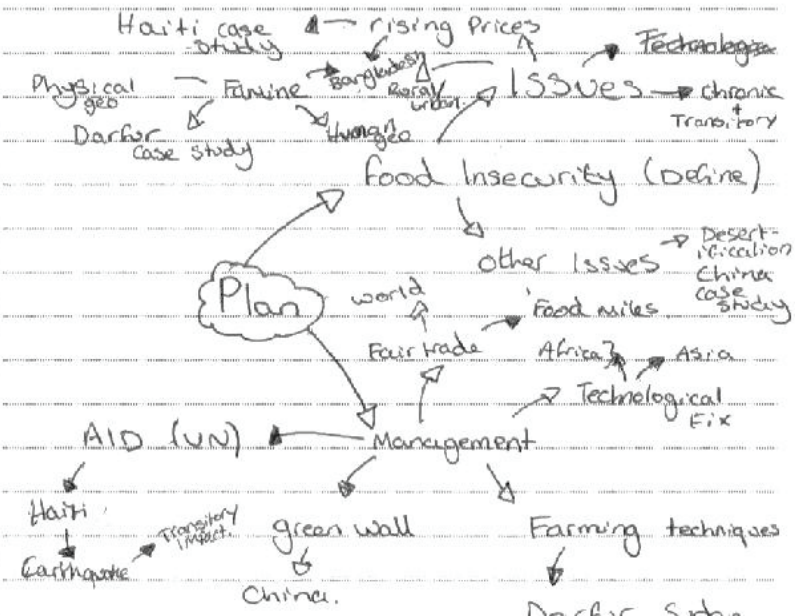 Haiti case study
rising Prices
Technologie
Physical geo
Famine
Bangladesh
Rural/urban.
Issues
chronic + Transitory
Darfur case study
Human geo
Food Insecurity (Define)
Other Issues
Desert-
ification
China
case
study
Plan
world
Food miles
Fairtrade
Africa?
Asia
Technological
Fix
AID (UN)
Management
Haiti
Transitory
impact.
green wall
Farming techniques
Earthquake
China.
Darfur